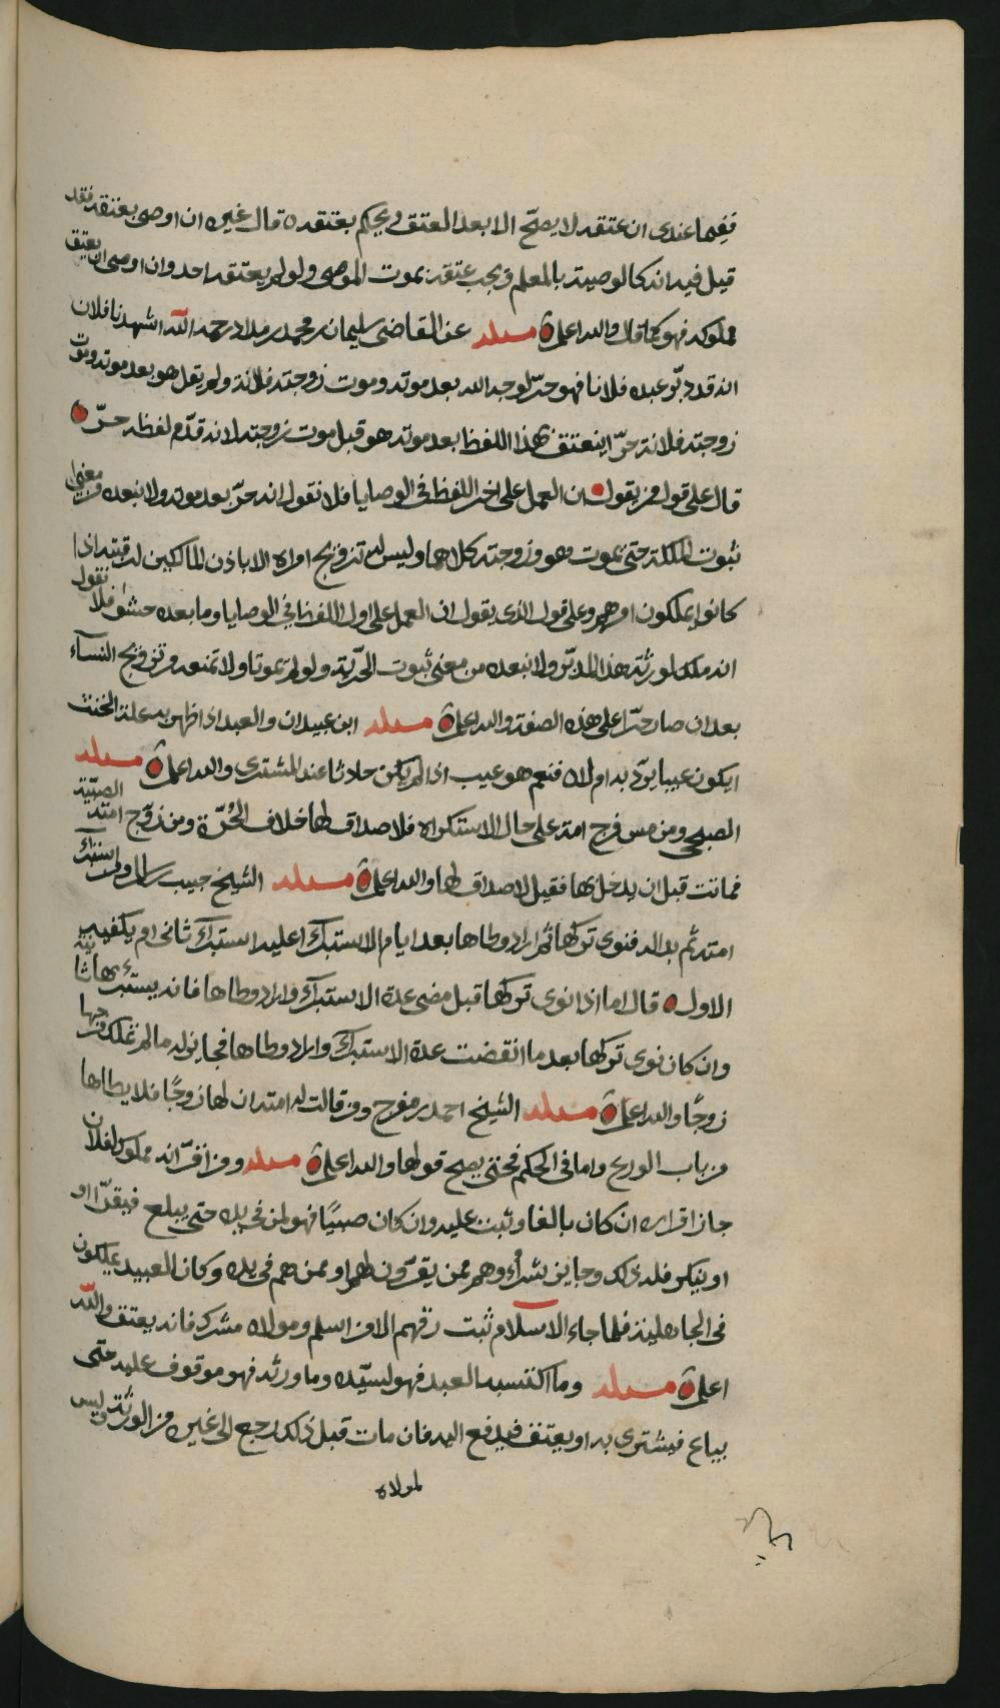 ففيما عندى ان عتقه لا يصحّ الا بعد العتق ويحكم بعتقه ه قال غيره ان اوصى بعتقه فقد
قيل فيه انه كالوصيته بالمعلم ويجب عتقه بموت الموصى ولو لم يعتقه احد وان اوصى ان يعتق
مملوكه فهو كما قال والله اعلم مسئله عن القاضى سليمان بن محمد بن مداد رحمه الله اشهدنا فلان
انه قد دبّر عبده فلانا فهو حرّ لوجه الله بعد موته وموت زوجته فلانة ولم يقل هو بعد موته وموت
زوجته فلانة حرّ اينعتق بهذا اللفظ بعد موته هو قبل موت زوجته لانه قدّم لفظه حرّ
قال على قول من يقول ان العمل على اخر اللفظ فى الوصايا فلا نقول انه حرّ بعد موته ولا نبعده من معنى
ثبوت الملكة حتى يموت هو وزوجته كلاهما وليس له تزويج امراة الا باذن المالكين لرقبته اذا
كانوا يملكون امرهم وعلى قول الذى يقول ان العمل على اول اللفظ فى الوصايا وما بعده حشو فلا نقول
انه ملك لورثته هذا المدبّر ولا نبعده من معنى ثبوت الحرّية ولو لم يموتا ولا تمنعه من تزويج النساء
بعد ان صار حرّا على هذه الصفة والله اعلم مسئله ابن عبيدان والعبد اذا ظهر به علة الخنث
ايكون عيبا يردّ به ام لا ه فنعم هو عيب اذا لم يكن حادثا عند المشترى والله اعلم مسئله
الصبحى ومن مس فرج امته على حال الاستكراه فلا صداق لها خلاف الحُرّة ومن زوّج امته الصبيّة
فماتت قبل ان يدخل بها فقيل لا صداق لها والله اعلم مسئله الشيخ حبيب بن سالم ومن استبرأ
امته ثم بدا له فنوى تركها ثم اراد وطاها بعد ايام الاستبراء اعليه استبراء ثانى ام يكفيه
الاول قال اما اذا نوى تركها قبل مضى عدة الاستبراء واراد وطاها فانه يستبرئها ثانية
وان كان نوى تركها بعد ما انقضت عدة الاستبراء واراد وطاها فجايز له ما لم تملك فرجها
زوجًا والله اعلم مسئله الشيخ احمد بن مفرح ومن قالت له امته ان لها زوجًا فلا يطاها
من باب الورع واما فى الحكم فحتى يصح قولها والله اعلم مسئله ومن اقرّ انه مملوك لفلان
جاز اقراره ان كان بالغا وثبت عليه وان كان صبيًا فهو لمن فى يده حتى يبلغ فيقرّ او
او ينكر فله ذلك وجايز شراؤهم ممن يقرّون لهم او ممن هم فى يده وكان العبيد يملكون
فى الجاهلية فلما جاء الاسلام ثبت رقهم الا من اسلم ومولاه مشرك فانه يعتق والله
اعلم مسئله وما اكتسبه العبد فهو لسيّده وما ورثه فهو موقوف عليه حتى
يباع فيشترى به او يعتق فيدفع اليه فان مات قبل ذلك رجع الى غيره من الورثة وليس
لمولاه